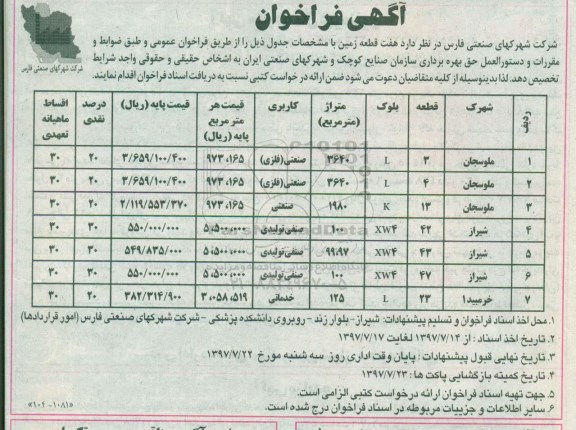 آگهی فراخوان
شرکت شهرکهای صنعتی فارس
شرکت شهرکهای صنعتی فارس در نظر دارد هفت قطعه زمین با مشخصات جدول ذیل را از طریق فراخوان عمومی و طبق ضوابط و
مقررات و دستورالعمل حق بهره برداری سازمان صنایع کوچک و شهرکهای صنعتی ایران به اشخاص حقیقی و حقوقی واجد شرایط
تخصیص دهد. لذا بدینوسیله از کلیه متقاضیان دعوت می شود ضمن ارائه درخواست کتبی نسبت به دریافت اسناد فراخوان اقدام نمایند.
ردیف شهرک قطعه بلوک متراژ (مترمربع) کاربری قیمت هر متر مربع پایه (ریال) قیمت پایه (ریال) درصد نقدی اقساط ماهیانه تعهدی
۱ ملوسجان ۳ L ۳۶۴۰ صنعتی(فلزی) ۹۷۳،۱۶۵ ۳/۶۵۹/۱۰۰/۴۰۰ ۲۰ ۳۰
۲ ملوسجان ۴ L ۳۶۴۰ صنعتی(فلزی) ۹۷۳،۱۶۵ ۳/۶۵۹/۱۰۰/۴۰۰ ۲۰ ۳۰
۳ ملوسجان ۱۳ K ۱۹۸۰ صنعتی ۹۷۳،۱۶۵ ۲/۱۱۹/۵۵۳/۳۷۰ ۲۰ ۳۰
۴ شیراز ۴۲ XW۴ ۱۰۰ صنفی‌تولیدی ۵،۵۰۰،۰۰۰ ۵۵۰/۰۰۰/۰۰۰ ۳۰ ۳۰
۵ شیراز ۴۳ XW۴ ۹۹،۹۷ صنفی‌تولیدی ۵،۵۰۰،۰۰۰ ۵۴۹/۸۳۵/۰۰۰ ۳۰ ۳۰
۶ شیراز ۴۷ XW۴ ۱۰۰ صنفی‌تولیدی ۵،۵۰۰،۰۰۰ ۵۵۰/۰۰۰/۰۰۰ ۳۰ ۳۰
۷ خرمبید۱ ۲۳ L ۱۲۵ خدماتی ۳،۰۵۸،۵۱۹ ۳۸۲/۳۱۴/۹۰۰ ۲۰ ۳۰
۱. محل اخذ اسناد فراخوان و تسلیم پیشنهادات: شیراز- بلوار زند - روبروی دانشکده پزشکی - شرکت شهرکهای صنعتی فارس (امور قراردادها)
۲. تاریخ اخذ اسناد : از ۱۳۹۷/۷/۱۴ لغایت ۱۳۹۷/۷/۱۷
۳. تاریخ نهایی قبول پیشنهادات : پایان وقت اداری روز سه شنبه مورخ ۱۳۹۷/۷/۲۲
۴. تاریخ کمیته بازگشایی پاکت ها : ۱۳۹۷/۷/۲۳
۵. جهت تهیه اسناد فراخوان ارائه درخواست کتبی الزامی است.
۶. سایر اطلاعات و جزییات مربوطه در اسناد فراخوان درج شده است.
«۱۰۲-۱۰۸۱»